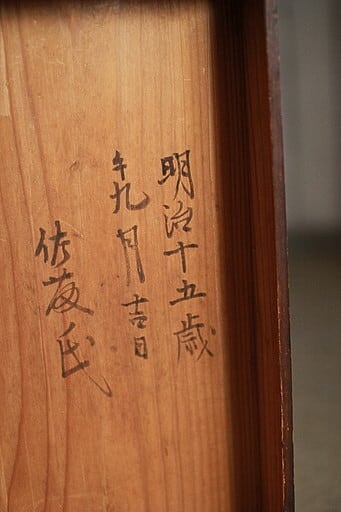 明治十五歳
午九月吉日
佐藤氏